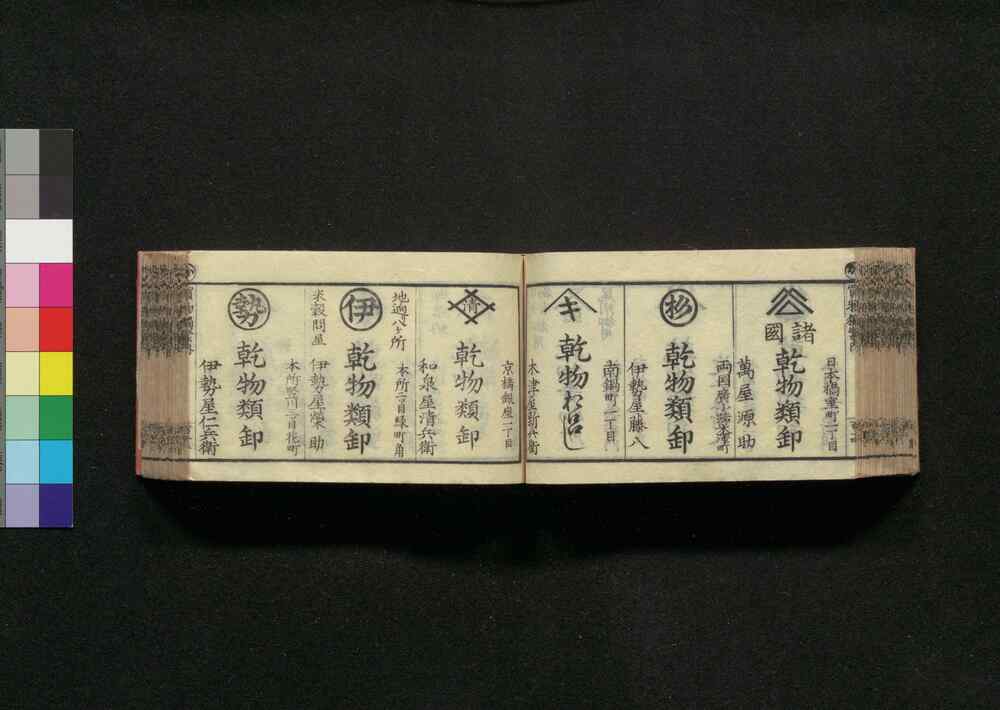 日本橋室町一丁目
諸國
乾物類卸
萬屋源助
両国廣小路米沢町
杉
乾物類卸
伊勢屋藤八
南鍋町一丁目
キ
乾物おろし
木津屋新兵衛
京橋銀座一丁目
清
乾物類卸
和泉屋清兵衛
地廻り八ヶ所
本所二ツ目緑町角
伊
乾物類卸
米穀問屋
伊勢屋榮助
本所竪川三ツ目花町
勢
乾物類卸
伊勢屋仁兵衛